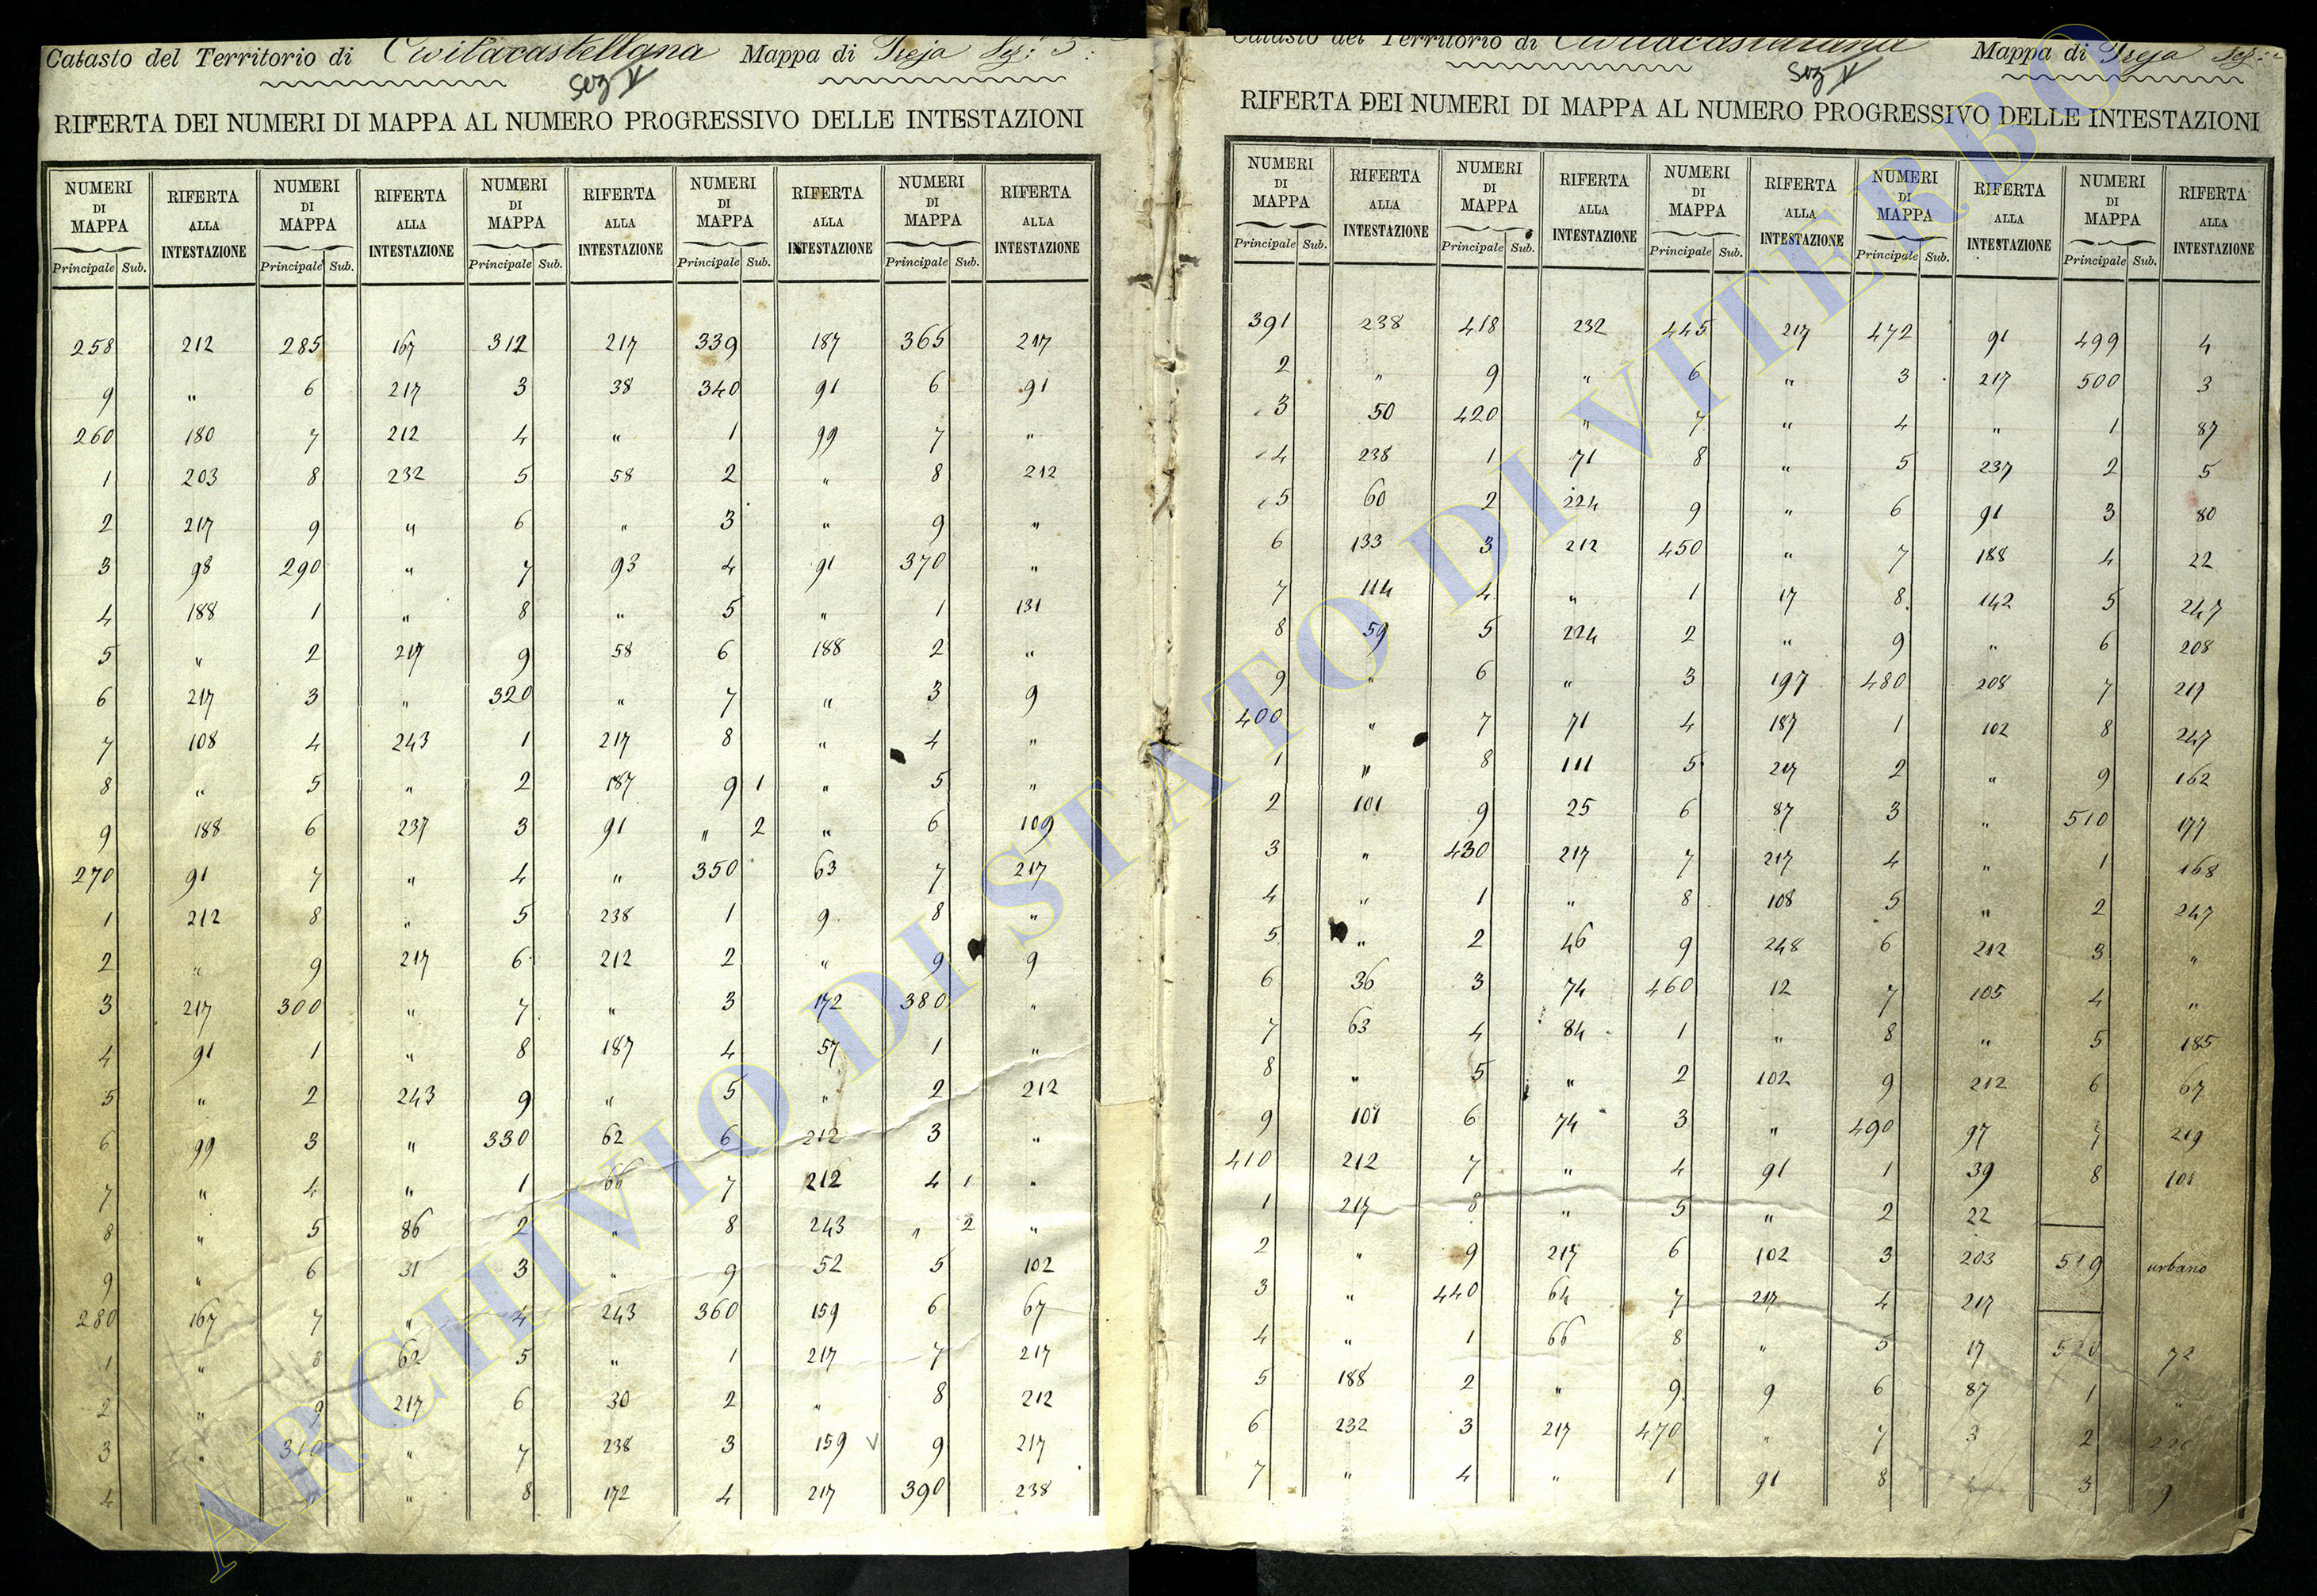 Catasto del Territorio di Civitacastellana Mappa di Treja Sez: 5.
Sez V
RIFERTA DEI NUMERI DI MAPPA AL NUMERO PROGRESSIVO DELLE INTESTAZIONI
NUMERI DI MAPPA RIFERTA ALLA INTESTAZIONE NUMERI DI MAPPA RIFERTA ALLA INTESTAZIONE NUMERI DI MAPPA RIFERTA ALLA INTESTAZIONE NUMERI DI MAPPA RIFERTA ALLA INTESTAZIONE NUMERI DI MAPPA RIFERTA ALLA INTESTAZIONE
Principale Sub. Principale Sub. Principale Sub. Principale Sub. Principale Sub.
258 212 285 167 312 217 339 187 365 217
9 " 6 217 3 38 340 91 6 91
260 180 7 212 4 " 1 99 7 "
1 203 8 232 5 58 2 " 8 212
2 217 9 " 6 " 3 " 9 "
3 98 290 " 7 93 4 91 370 "
4 188 1 " 8 " 5 " 1 131
5 " 2 217 9 58 6 188 2 "
6 217 3 " 320 " 7 " 3 9
7 108 4 243 1 217 8 " 4 "
8 " 5 " 2 187 9 1 " 5 "
9 188 6 237 3 91 " 2 " 6 109
270 91 7 " 4 " 350 63 7 217
1 212 8 " 5 238 1 9 8 "
2 " 9 217 6 212 2 " 9 9
3 217 300 " 7 " 3 172 380 "
4 91 1 " 8 187 4 57 1 "
5 " 2 243 9 " 5 " 2 212
6 99 3 " 330 62 6 212 3 "
7 " 4 " 1 66 7 212 4 1 "
8 " 5 86 2 " 8 243 " 2 "
9 " 6 31 3 " 9 52 5 102
280 167 7 " 4 243 360 159 6 67
1 " 8 62 5 " 1 217 7 217
2 " 9 217 6 30 2 " 8 212
3 " 310 " 7 238 3 159 V 9 217
4 " " 8 172 4 217 390 238
Catasto del Territorio di Civitacastellana Mappa di Treja Sez:
Sez V
RIFERTA DEI NUMERI DI MAPPA AL NUMERO PROGRESSIVO DELLE INTESTAZIONI
NUMERI DI MAPPA RIFERTA ALLA INTESTAZIONE NUMERI DI MAPPA RIFERTA ALLA INTESTAZIONE NUMERI DI MAPPA RIFERTA ALLA INTESTAZIONE NUMERI DI MAPPA RIFERTA ALLA INTESTAZIONE NUMERI DI MAPPA RIFERTA ALLA INTESTAZIONE
Principale Sub. Principale Sub. Principale Sub. Principale Sub. Principale Sub.
391 238 418 232 445 217 472 91 499 4
2 " 9 " 6 " 3 217 500 3
3 50 420 " 7 " 4 " 1 87
4 238 1 71 8 " 5 237 2 5
5 60 2 224 9 " 6 91 3 80
6 133 3 212 450 " 7 188 4 22
7 114 4 " 1 17 8 142 5 247
8 59 5 224 2 " 9 " 6 208
9 " 6 " 3 197 480 208 7 217
400 " 7 71 4 187 1 102 8 247
1 " 8 111 5 217 2 " 9 162
2 101 9 25 6 87 3 " 510 177
3 " 430 217 7 217 4 " 1 168
4 " 1 " 8 108 5 " 2 247
5 " 2 46 9 248 6 212 3 "
6 36 3 74 460 12 7 105 4 "
7 63 4 84 1 " 8 " 5 185
8 " 5 " 2 102 9 212 6 67
9 101 6 74 3 " 490 97 7 219
410 212 7 " 4 91 1 39 8 101
1 217 8 " 5 " 2 22
2 " 9 217 6 102 3 203 519 urbano
3 " 440 64 7 217 4 217
4 " 1 66 8 " 5 17 520 72
5 188 2 " 9 9 6 87 1 "
6 232 3 217 470 " 7 3 2
7 " 4 " 1 91 8 3 9
ARCHIVIO DI STATO DI VITERBO